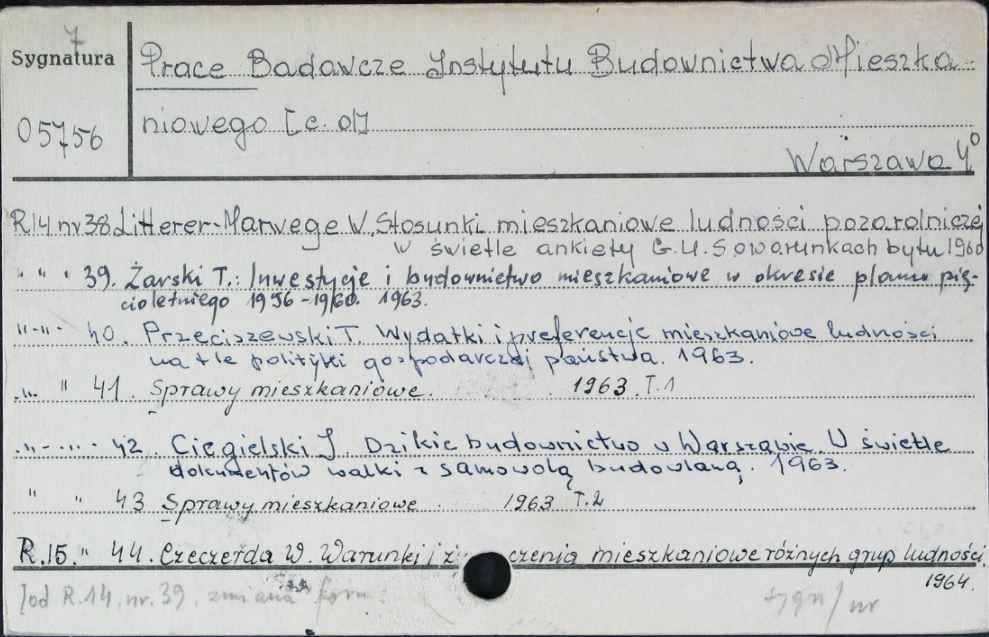 Sygnatura 7
Prace Badawcze Instytutu Budownictwa Mieszka-
05756
niowego [c. d]
Warszawa 4°
R14 nr 38 Litterer-Marwege W. Stosunki mieszkaniowe ludności pozarolniczej
w świetle ankiety G.U.S o warunkach bytu 1960
" " " 39. Żarski T.: Inwestycje i budownictwo mieszkaniowe w okresie planu pię-
cioletniego 1956-1960. 1963.
" - " - 40. Przeciszewski T. Wydatki i preferencje mieszkaniowe ludności
na tle polityki gospodarczej państwa. 1963.
" " 41. Sprawy mieszkaniowe. 1963. T.1
" - " - 42. Ciegielski J. Dzikie budownictwo w Warszawie. W świetle
dokumentów walki z samowolą budowlaną. 1963.
" " 43 Sprawy mieszkaniowe. 1963 T.2
R.15. " 44. Czeczerda W. Warunki i czenia mieszkaniowe różnych grup ludności.
1964.
[od R.14. nr. 39. zmiana form.
sygn/nr